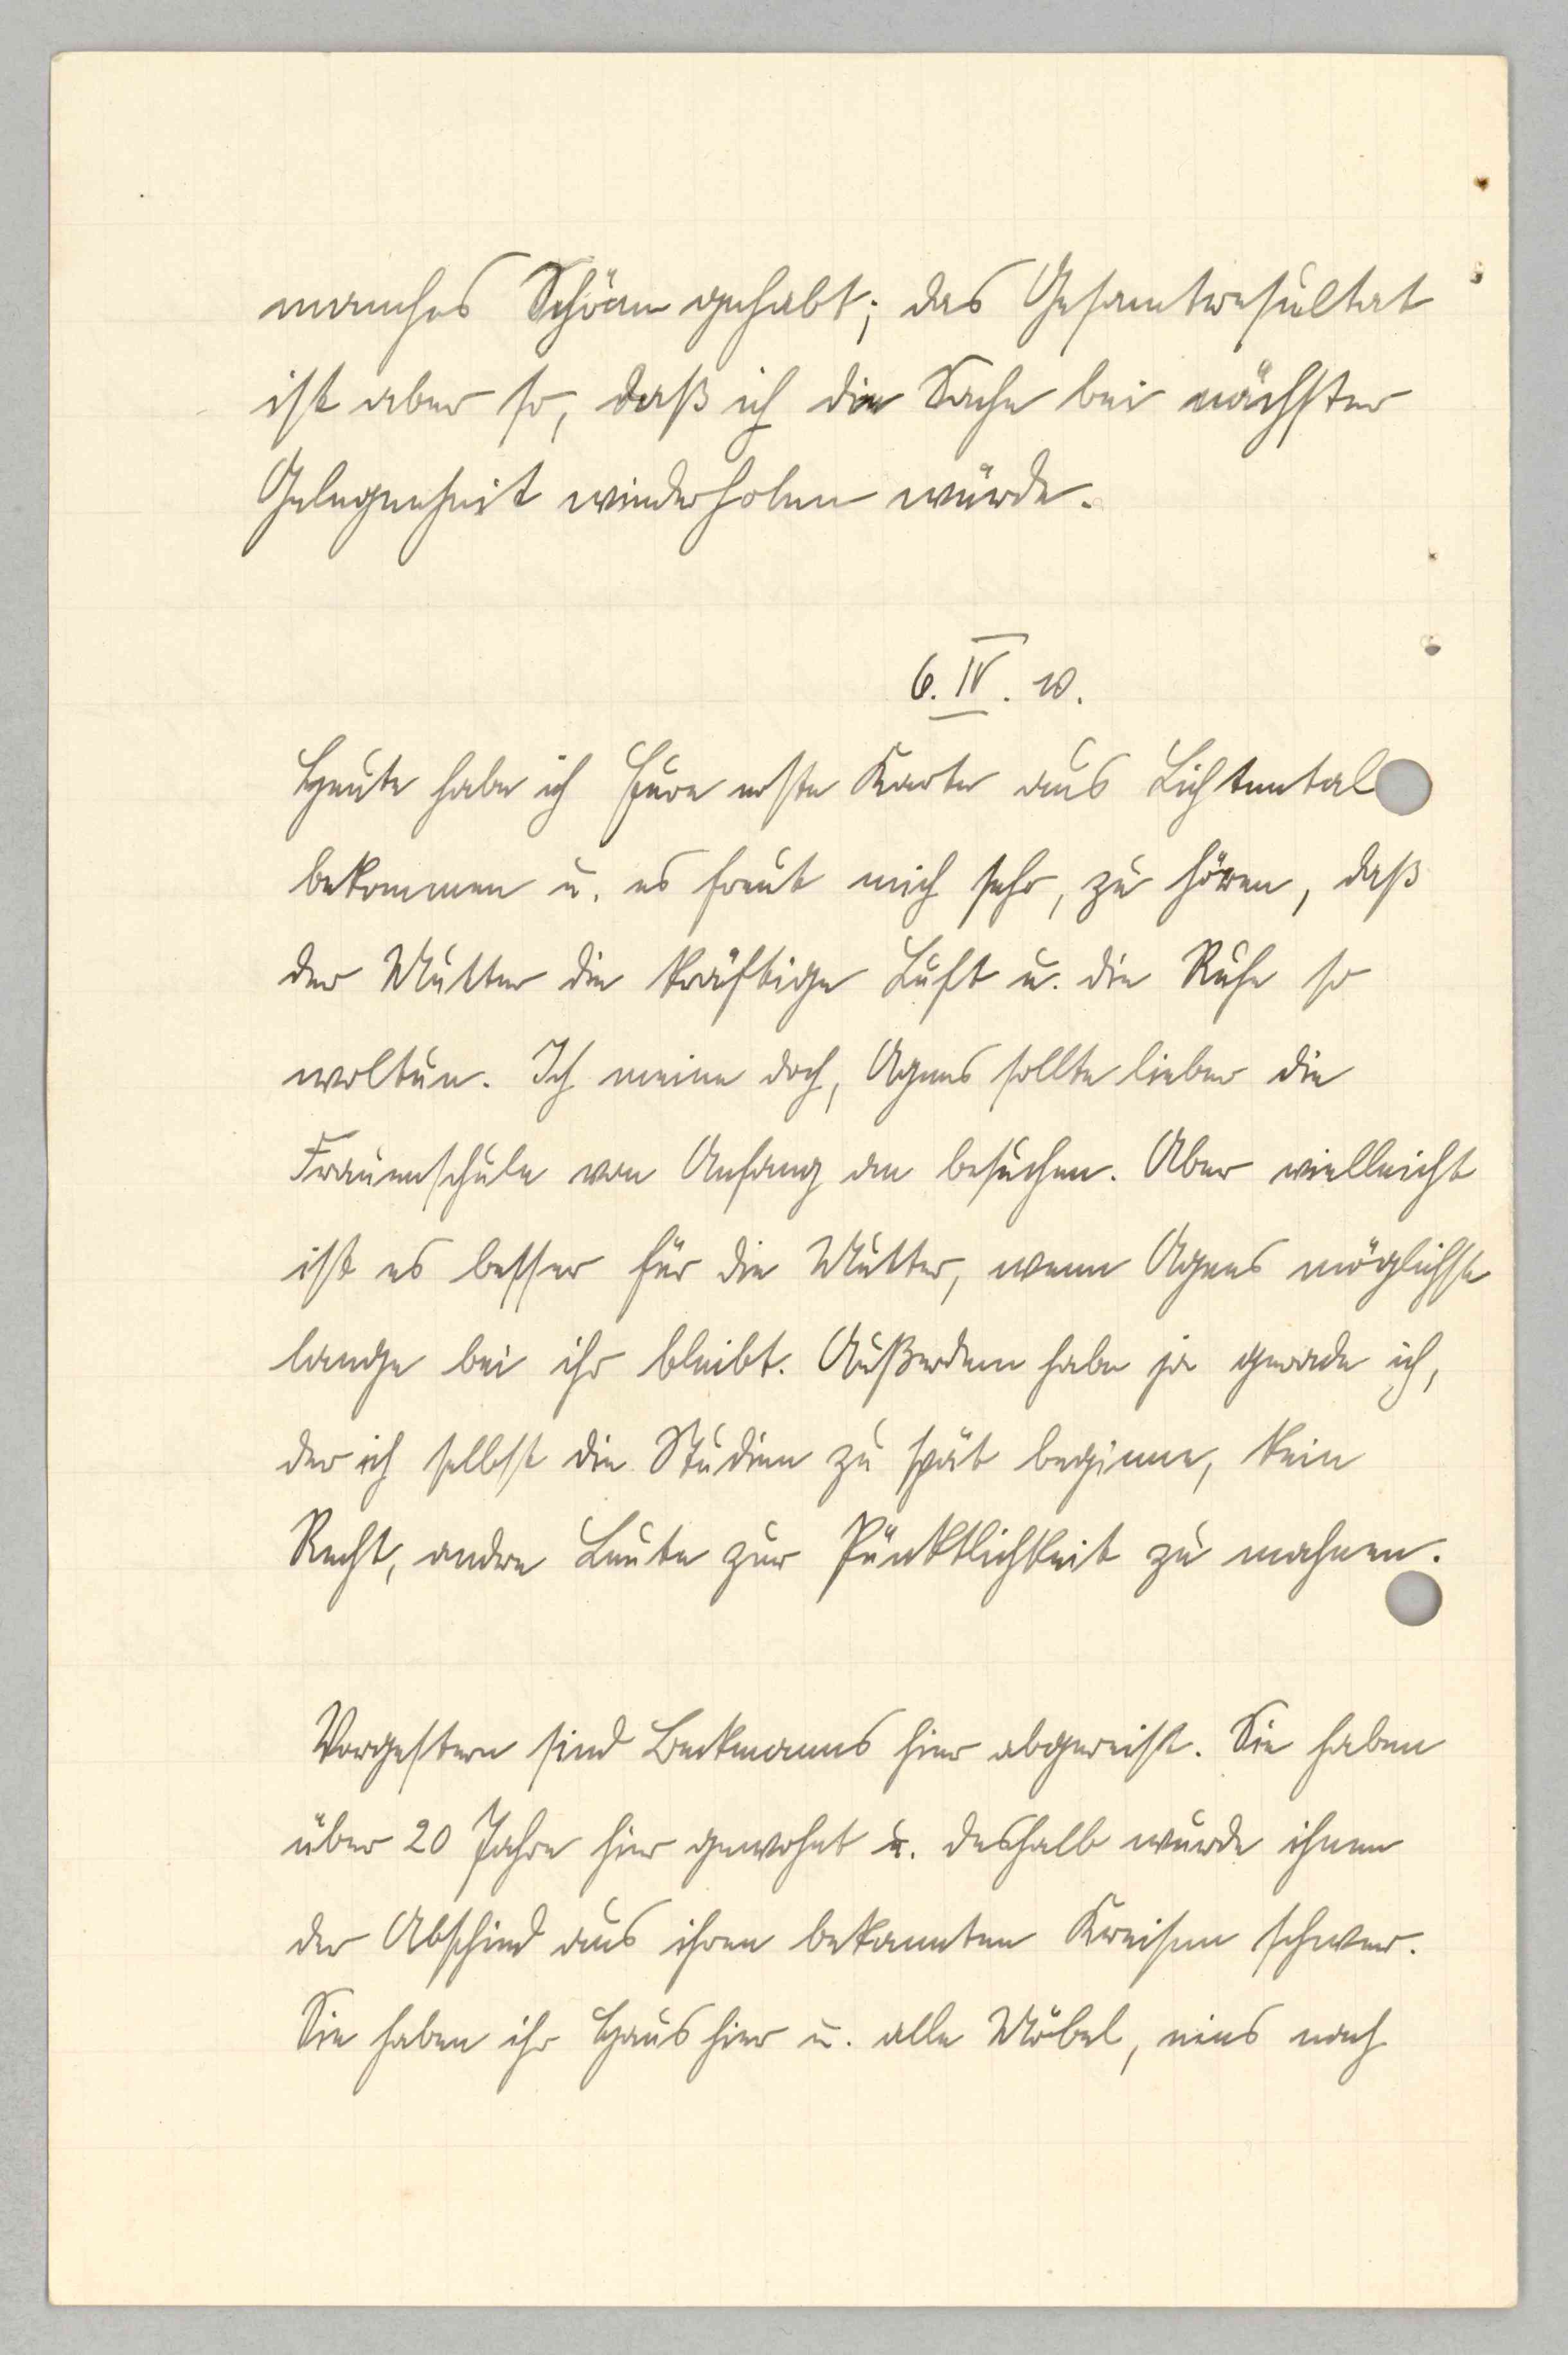 manches Schöne gehabt; das Gesamtresultat
ist aber so, daß ich die Sache bei nächster
Gelegenheit wiederholen würde.
6. IV. 10.
Heute habe ich Eure erste Karte aus Lichtental
bekommen u. es freut mich sehr, zu hören, daß
der Mutter die kräftige Luft u. die Ruhe so
woltun. Ich meine doch, Agnes sollte lieber die
Frauenschule von Anfang an besuchen. Aber vielleicht
ist es besser für die Mutter, wenn Agnes möglichst
lange bei ihr bleibt. Außerdem habe ja gerade ich,
der ich selbst die Studien zu spät beginne, kein
Recht, andre Leute zur Pünktlichkeit zu mahnen.
Vorgestern sind Beckmanns hier abgereist. Sie haben
über 20 Jahre hier gewohnt u. deshalb wurde ihnen
der Abschied aus ihren bekannten Kreisen schwer.
Sie haben ihr Haus hier u. alle Möbel, eins nach